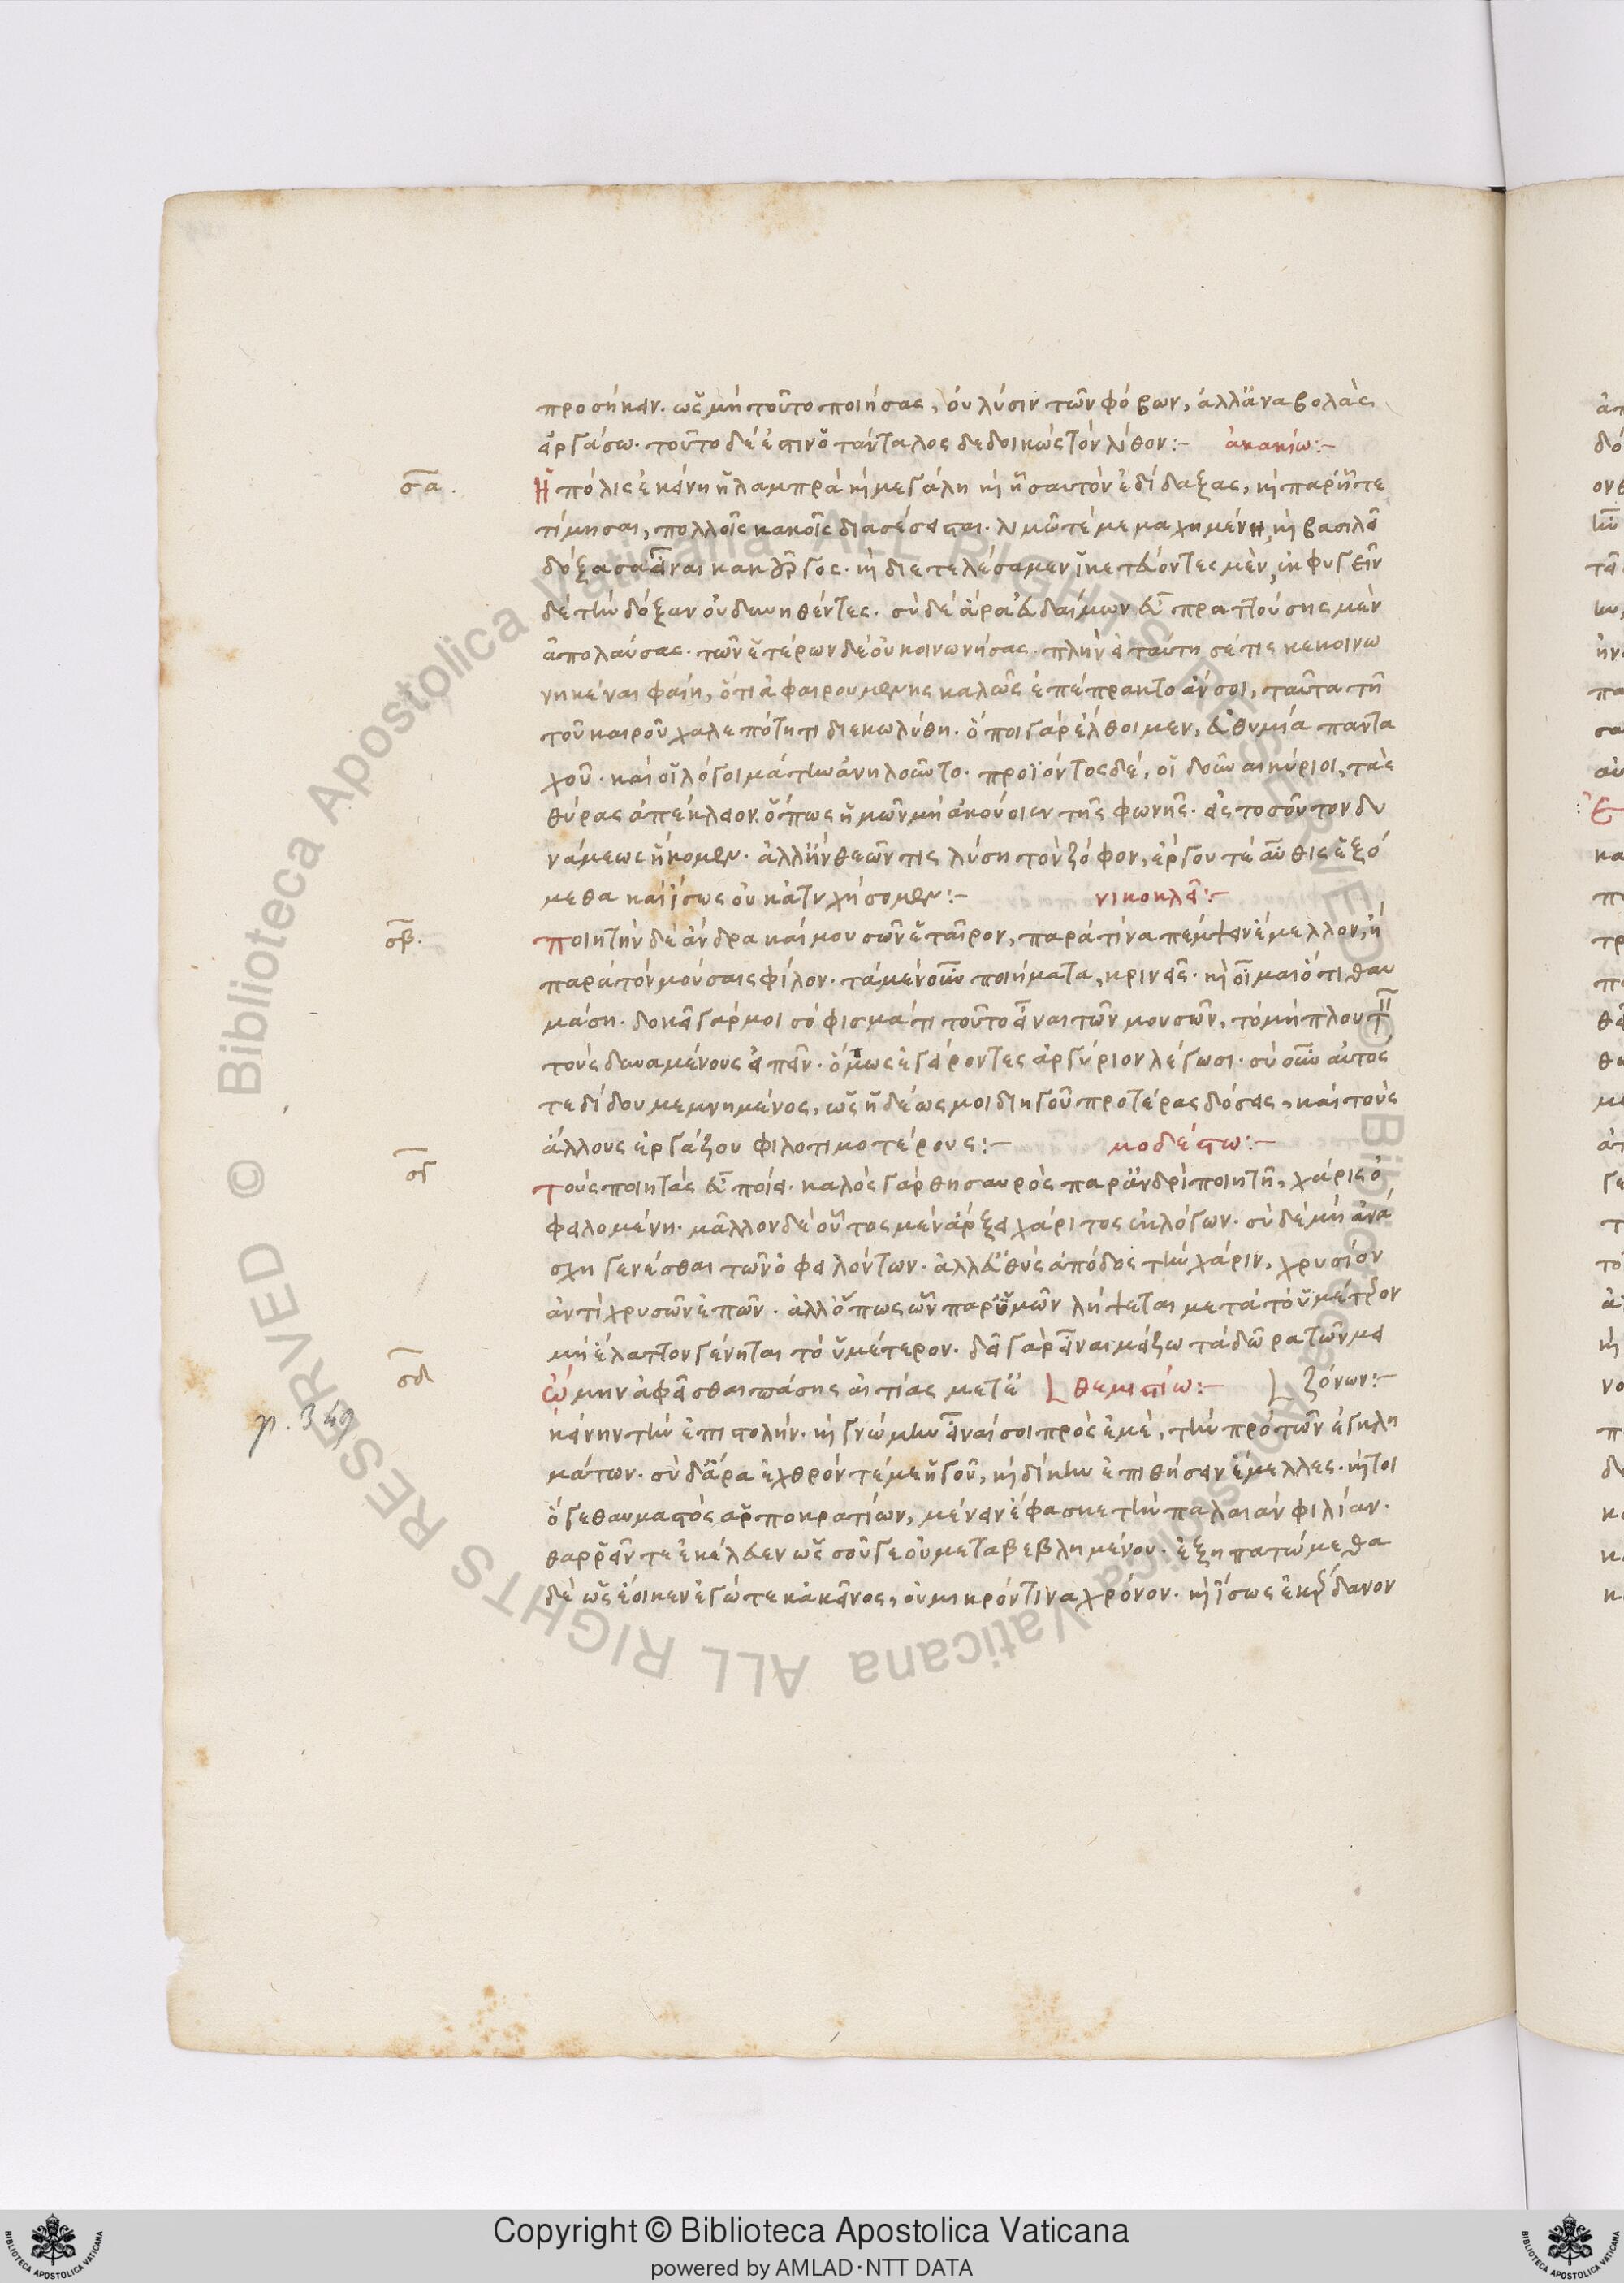 προσήκειν. ὡς μὴ τοῦτο ποιήσας, οὐ λύσιν τῶν φόβων, ἀλλ' ἀναβολὰς
ἐργάσω. τοῦτο δέ ἐστιν ὁ τάνταλος δεδοικὼς τὸν λίθον:– ἀκακίω:–
σα.
Ἡ πόλις ἐκείνη ἡ λαμπρὰ καὶ μεγάλη καὶ ἣ σαυτὸν ἐδίδαξας, καὶ παρ' ἧς τε
τίμησαι, πολλοῖς κακοῖς διασέσεισται. λιμῶ τέ μεμαχημένη, καὶ βασιλεῖ
δόξασα εἶναι κακοῦργος. καὶ διετελέσαμεν ἱκετεύοντες μὲν, ἐκφυγεῖν
δὲ τὴν δόξαν οὐ δυνηθέντες. σὺ δὲ ἄρα εὐδαίμων εὖ πραττούσης μὲν
ἀπολαύσας. τῶν ἑτέρων δὲ οὐ κοινωνήσας. πλὴν εἰ ταύτη σέ τις κεκοινω
νηκέναι φαίη, ὅτι ἃ φαιρουμένης καλῶς ἐπέπρακτο ἄν σοι, ταῦτα τῆ
τοῦ καιροῦ χαλεπότητι διεκωλύθη. ὅποι γὰρ ἔλθοιμεν, ἀθυμία παντα
χοῦ. καὶ οἱ λόγοι μάτην ἀνηλοῦντο. προϊόντος δὲ, οἱ δοῦναι κύριοι, τὰς
θύρας ἀπέκλειον. ὅπως ἡμῶν μὴ ἀκούοιεν τῆς φωνῆς. εἰς τοσοῦτον δυ
νάμεως ἥκομεν. ἀλλ' ἢν θεῶν τις λύση τὸν ζόφον, ἔργου τὲ αὖθις ἑξό
μεθα καὶ ἴσως οὐκ ἀτυχήσομεν:– νικοκλεῖ:–
σβ.
ποιητὴν δὲ ἄνδρα καὶ μουσῶν ἑταῖρον, παρὰ τίνα πέμψειν ἔμελλον, ἢ
παρὰ τὸν μούσαις φίλον. τὰ μὲν οὖν ποιήματα, κρινεῖς. καὶ οἶμαι ὅτι θαυ
μάση. δοκεῖ γάρ μοι σόφισμά τι τοῦτο εἶναι τῶν μουσῶν, τὸ μὴ πλουτεῖν
τοὺς δυναμένους εἰπεῖν. ὅμως ἐγείροντες ἀργύριον λέγωσι. σὺ οὖν αὐτὸς
τε δίδου μεμνημένος, ὡς ἡδέως μοι διηγοῦ προτέρας δόσεις, καὶ τοὺς
ἄλλους ἐργάζου φιλοτιμοτέρους:– μοδέστω:–
σγ
τοὺς ποιητὰς εὖ ποίει. καλὸς γὰρ θησαυρὸς παρ' ἀνδρὶ ποιητῆ, χάρις ὀ
φειλομένη. μᾶλλον δὲ οὗτος μὲν ἄρξει χάριτος ἐκ λόγων. σὺ δὲ μὴ ἀνά
σχη γενέσθαι τῶν ὀφειλόντων. ἀλλ' εὐθὺς ἀπόδος τὴν χάριν, χρυσίον
ἀντὶ χρυσῶν ἐπῶν. ἀλλ' ὅπως ὧν παρ' ὑμῶν λήψεται μετὰ τὸ ὑμέτερον
μὴ ἔλαττον γένηται τὸ ὑμέτερον. δεῖ γὰρ εἶναι μείζω τὰ δῶρα τῶν μει
σδ
ᾤμην ἀφεῖσθαι πάσης αἰτίας μετ' ἐ θεμιστίω:– ζόνων:–
p. 349
κείνην τὴν ἐπιστολήν. καὶ γνώμην εἶναί σοι πρὸς ἐμὲ, τὴν πρὸ τῶν ἐγκλη
μάτων. σὺ δ' ἄρα ἐχθρόν τέ με ἡγοῦ, καὶ δίκην ἐπιθήσειν ἔμελλες. καί τοι
ὅ γε θαυμαστὸς ἁρποκρατίων, μένειν ἔφασκε τὴν παλαιὰν φιλίαν.
θαρρεῖν τε ἐκέλευεν ὡς σοῦ γε οὐ μεταβεβλημένου. ἐξηπατώμεθα
δὲ ὡς ἔοικεν ἐγώ τε κἀκεῖνος, οὐ μικρόν τινα χρόνον. καὶ ἴσως ἐκέρδανον
Copyright © Biblioteca Apostolica Vaticana
powered by AMLAD·NTT DATA